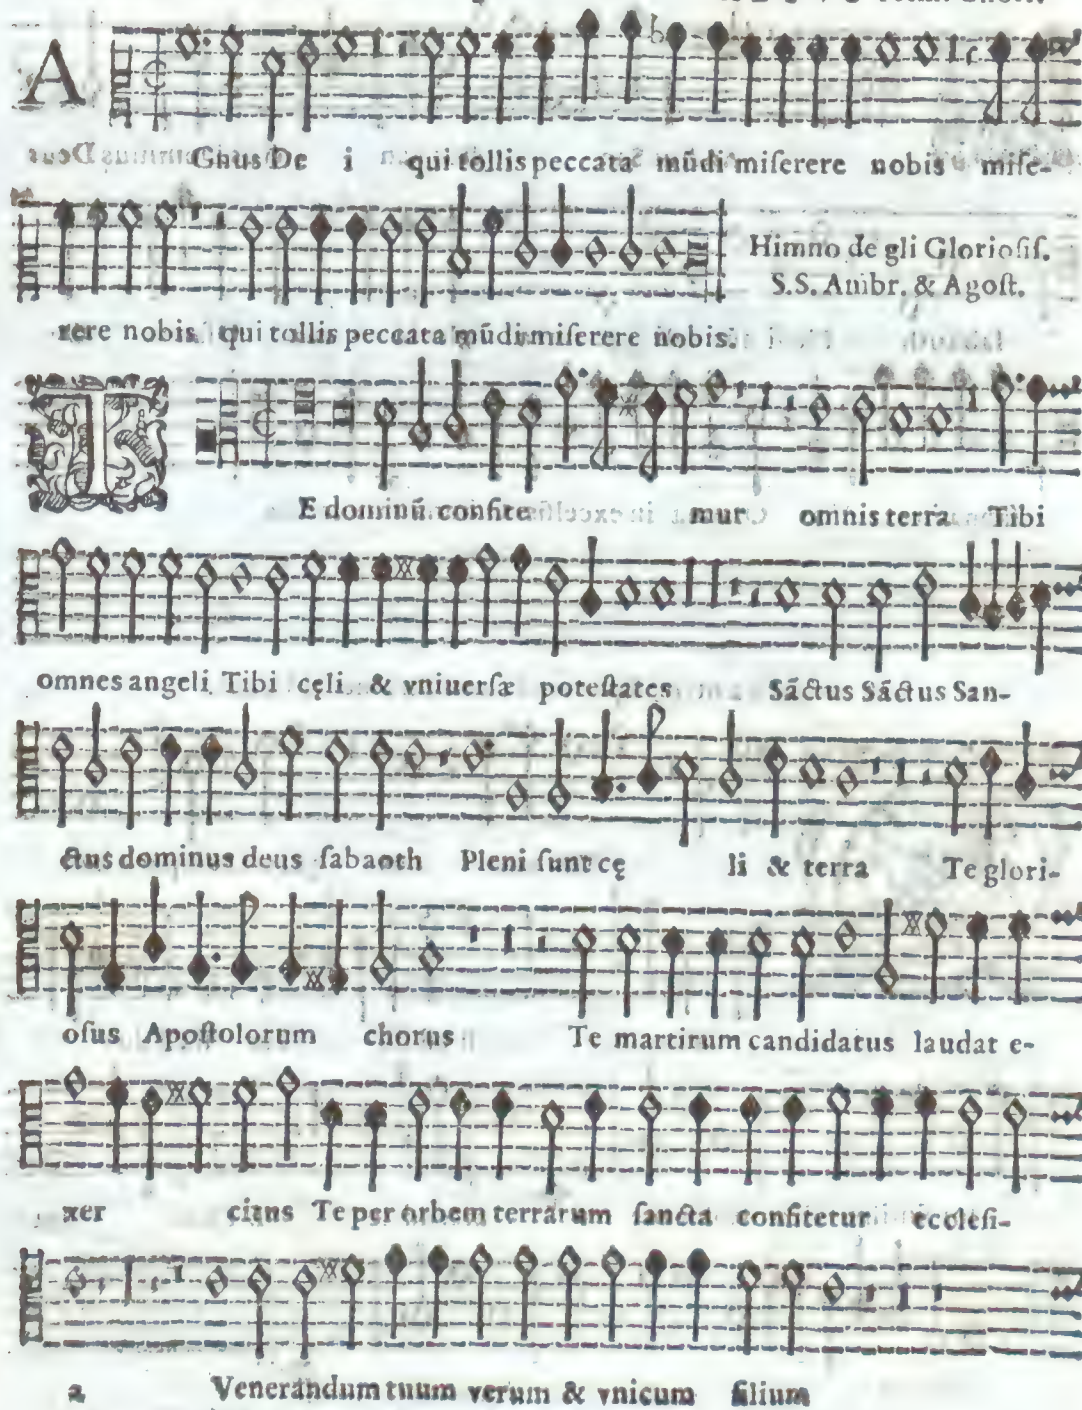 A
Gnus De i qui tollis peccata mũdi miſerere nobis miſe-
rere nobis qui tollis peccata mũdi miſerere nobis.
Himno de gli Glorioſiſ.
S.S. Ambr. & Agoſt.
T
E dominũ confite mur omnis terra Tibi
omnes angeli Tibi cęli & vniuerſæ poteſtates Sãctus Sãctus San-
ctus dominus deus ſabaoth Pleni ſunt cę li & terra Te glori-
oſus Apoſtolorum chorus Te martirum candidatus laudat e-
xer citus Te per orbem terrarum ſancta confitetur eccleſi-
a Venerandum tuum verum & vnicum filium